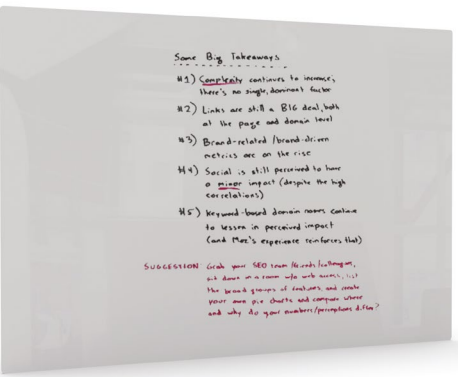 Some Big Takeaways
#1) Complexity continues to increase;
there's no single, dominant factor
#2) Links are still a BIG deal, both
at the page and domain level
#3) Brand-related / brand-driven
metrics are on the rise
#4) Social is still perceived to have
a minor impact (despite the high
correlations)
#5) Keyword-based domain names continue
to lessen in perceived impact
(and Moz's experience reinforces that)
SUGGESTION Grab your SEO team/friends/colleagues,
sit down in a room w/o web access, list
the broad groups of features, and create
your own pie charts and compare where
and why do your numbers/perceptions differ?